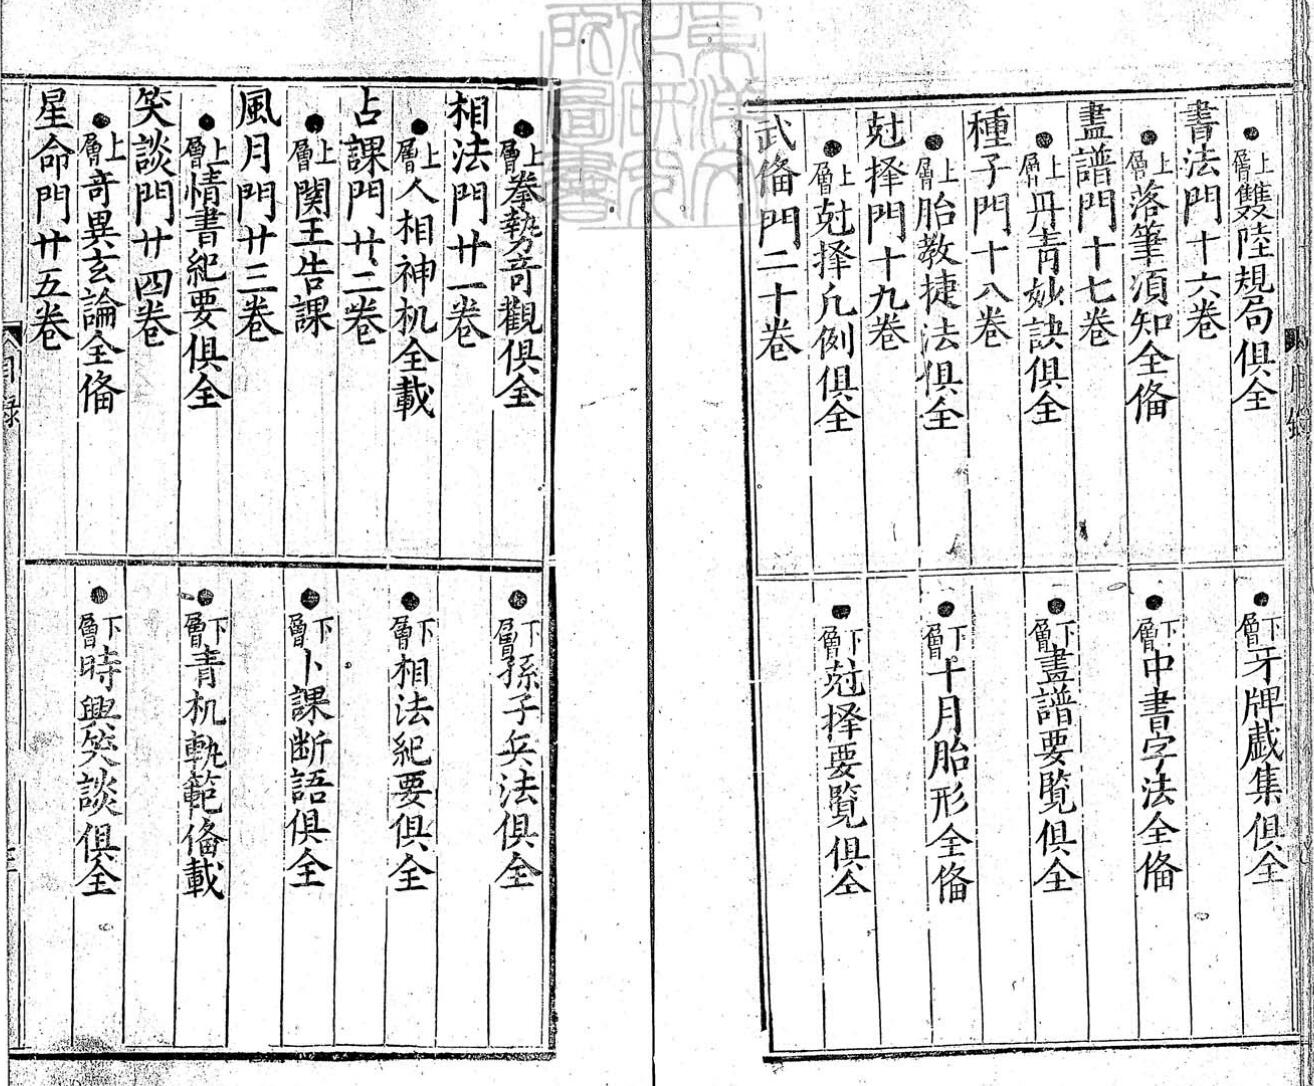 上層雙陸規局俱全
下層牙牌戲集俱全
書法門十六卷
上層落筆須知全偹
下層中書字法全偹
畫譜門十七卷
上層丹青妙訣俱全
下層畫譜要覽俱全
種子門十八卷
上層胎教捷法俱全
下層十月胎形全偹
尅择門十九卷
上層尅择凡例俱全
下層尅择要覽俱全
武偹門二十卷
上層拳勢竒觀俱全
下層孫子兵法俱全
相法門廿一卷
上層人相神机全載
下層相法紀要俱全
占課門廿二卷
上層関王告課
下層卜課断語俱全
風月門廿三卷
上層情書紀要俱全
下層青机軌範偹載
笑談門廿四卷
上層竒異玄論全偹
下層時興笑談俱全
星命門廿五卷
目錄